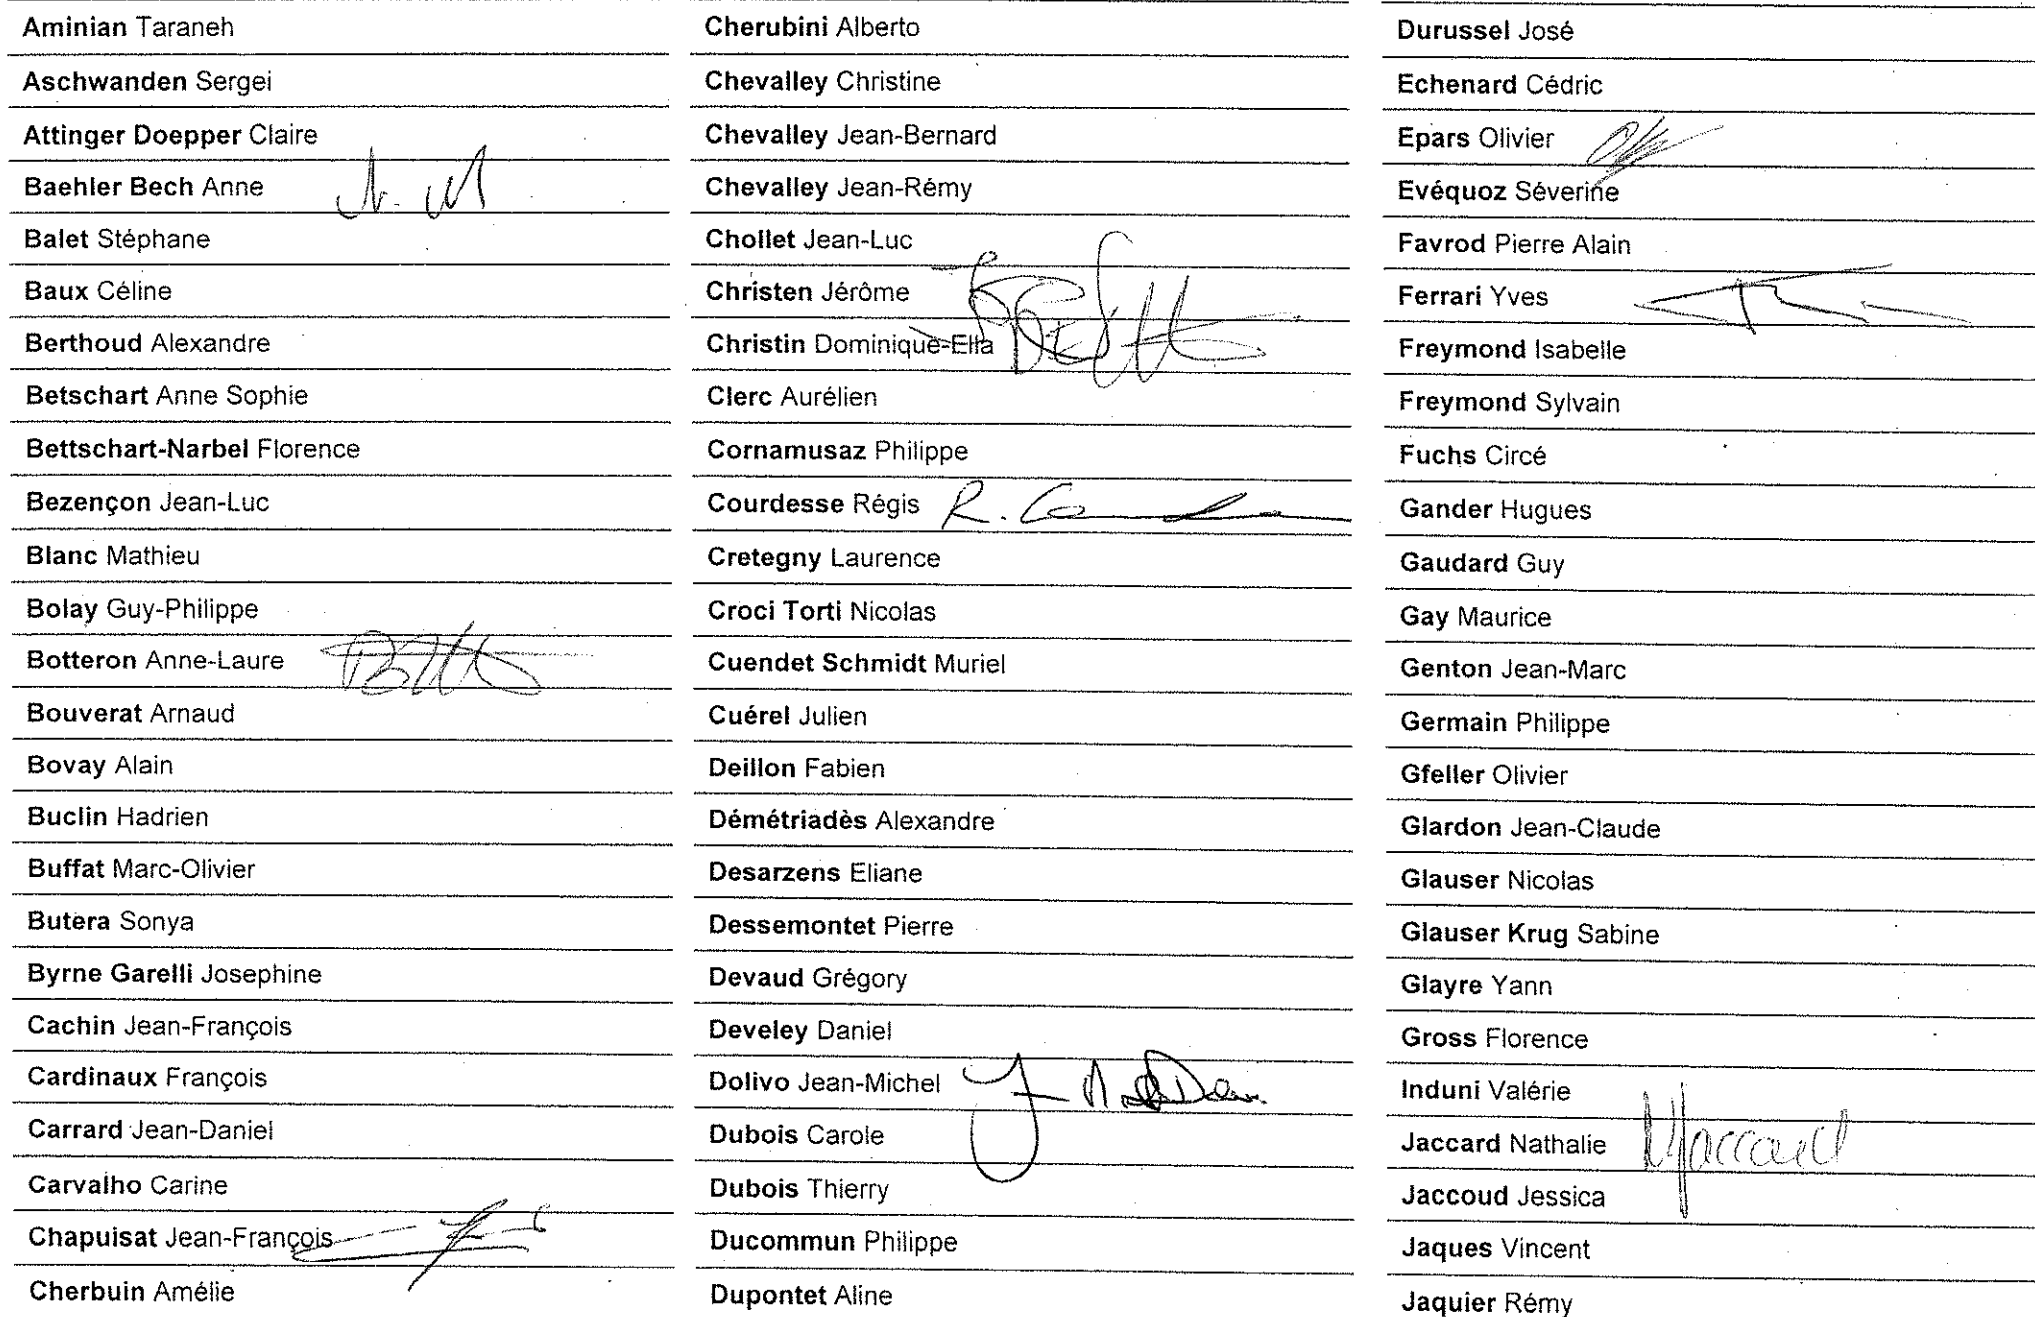 Aminian Taraneh
Aschwanden Sergei
Attinger Doepper Claire
Baehler Bech Anne
Balet Stéphane
Baux Céline
Berthoud Alexandre
Betschart Anne Sophie
Bettschart-Narbel Florence
Bezençon Jean-Luc
Blanc Mathieu
Bolay Guy-Philippe
Botteron Anne-Laure
Bouverat Arnaud
Bovay Alain
Buclin Hadrien
Buffat Marc-Olivier
Butera Sonya
Byrne Garelli Josephine
Cachin Jean-François
Cardinaux François
Carrard Jean-Daniel
Carvalho Carine
Chapuisat Jean-François
Cherbuin Amélie
Cherubini Alberto
Chevalley Christine
Chevalley Jean-Bernard
Chevalley Jean-Rémy
Chollet Jean-Luc
Christen Jérôme
Christin Dominique-Ella
Clerc Aurélien
Cornamusaz Philippe
Courdesse Régis R.
Cretegny Laurence
Croci Torti Nicolas
Cuendet Schmidt Muriel
Cuérel Julien
Deillon Fabien
Démétriadès Alexandre
Desarzens Eliane
Dessemontet Pierre
Devaud Grégory
Develey Daniel
Dolivo Jean-Michel
Dubois Carole
Dubois Thierry
Ducommun Philippe
Dupontet Aline
Durussel José
Echenard Cédric
Epars Olivier
Evéquoz Séverine
Favrod Pierre Alain
Ferrari Yves
Freymond Isabelle
Freymond Sylvain
Fuchs Circé
Gander Hugues
Gaudard Guy
Gay Maurice
Genton Jean-Marc
Germain Philippe
Gfeller Olivier
Glardon Jean-Claude
Glauser Nicolas
Glauser Krug Sabine
Glayre Yann
Gross Florence
Induni Valérie
Jaccard Nathalie NJaccard
Jaccoud Jessica
Jaques Vincent
Jaquier Rémy